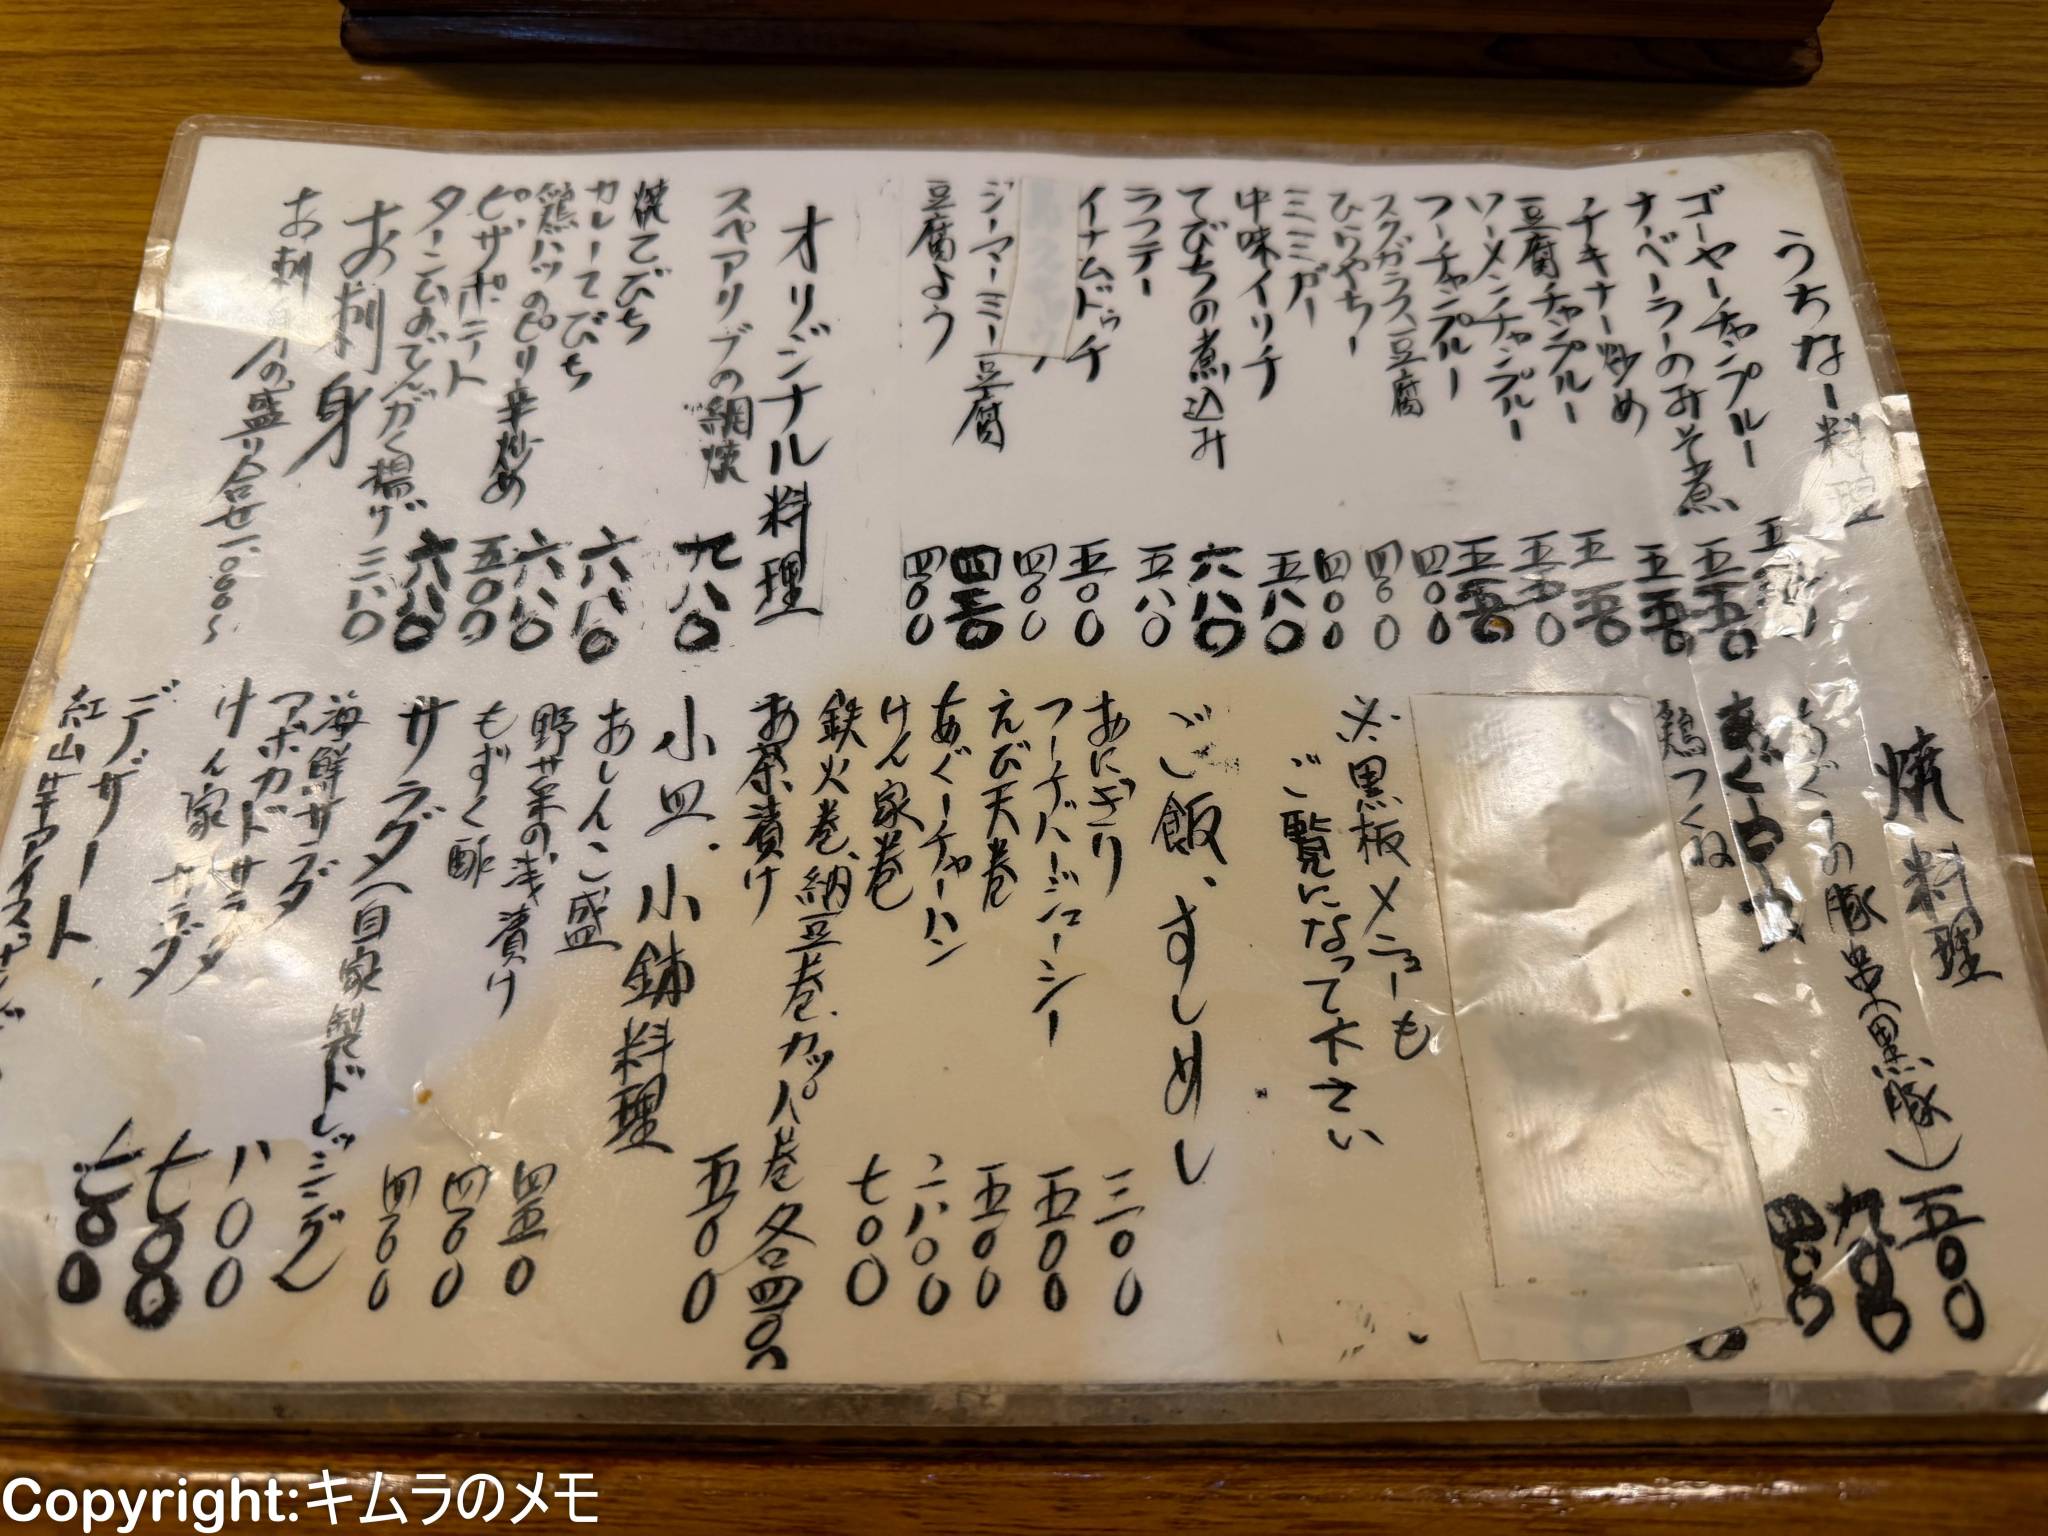 うちなー料理
ゴーヤーチャンプルー
ナーベーラーのみそ煮 五五〇
チキナー炒め 五五〇
豆腐チャンプルー 五五〇
ソーメンチャンプルー 五五〇
フーチャンプルー 五五〇
スクガラス豆腐 四〇〇
ひらやちー 四〇〇
ミミガー 四〇〇
中味イーリチ 五八〇
てびちの煮込み 六八〇
ラフテー 五八〇
イナムドゥチ 五〇〇
四〇〇
ジーマーミー豆腐 四五〇
豆腐よう 四〇〇
オリジナル料理
スペアリブの網焼 九八〇
焼てびち 六八〇
カレーてびち 六八〇
鶏ハツのピリ辛炒め 五〇〇
ピザポニート 六八〇
ターンムのでんがく揚げ 三八〇
お刺身
お刺身の盛り合せ 一、〇〇〇〜
焼料理
あぐーの豚串(黒豚) 五〇〇
鶏つくね
※黒板メニューも
ご覧になって下さい
ご飯、すしめし
おにぎり 三〇〇
フーチバージューシー 五〇〇
えび天巻 五〇〇
あぐーチャーハン 八〇〇
けん家巻 七〇〇
鉄火巻、納豆巻、カッパ巻 各四〇〇
お茶漬け 五〇〇
小皿、小鉢料理
あしんこ盛 四五〇
野菜の浅漬け 四〇〇
もずく酢 四〇〇
サラダ(自家製ドレッシング)
海鮮サラダ 八〇〇
アボカドサラダ 七〇〇
けん家サラダ 七〇〇
デザート
紅山芋アイス
Copyright:キムラのメモ